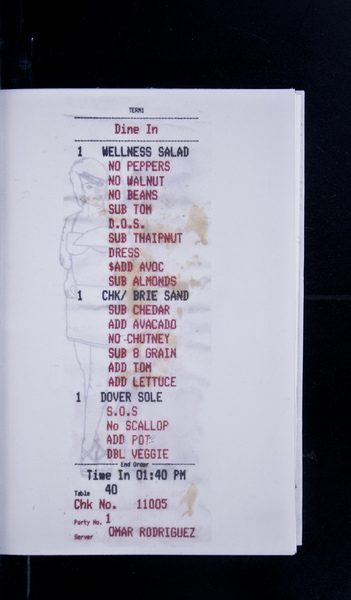 TERM1
Dine In
1 WELLNESS SALAD
NO PEPPERS
NO WALNUT
NO BEANS
SUB TOM
D.O.S.
SUB THAIPNUT
DRESS
$ADD AVOC
SUB ALMONDS
1 CHK/ BRIE SAND
SUB CHEDAR
ADD AVACADO
NO CHUTNEY
SUB 8 GRAIN
ADD TOM
ADD LETTUCE
1 DOVER SOLE
S.O.S
No SCALLOP
ADD POT
DBL VEGGIE
End Order
Time In 01:40 PM
Table 40
Chk No. 11005
Party No. 1
Server OMAR RODRIGUEZ